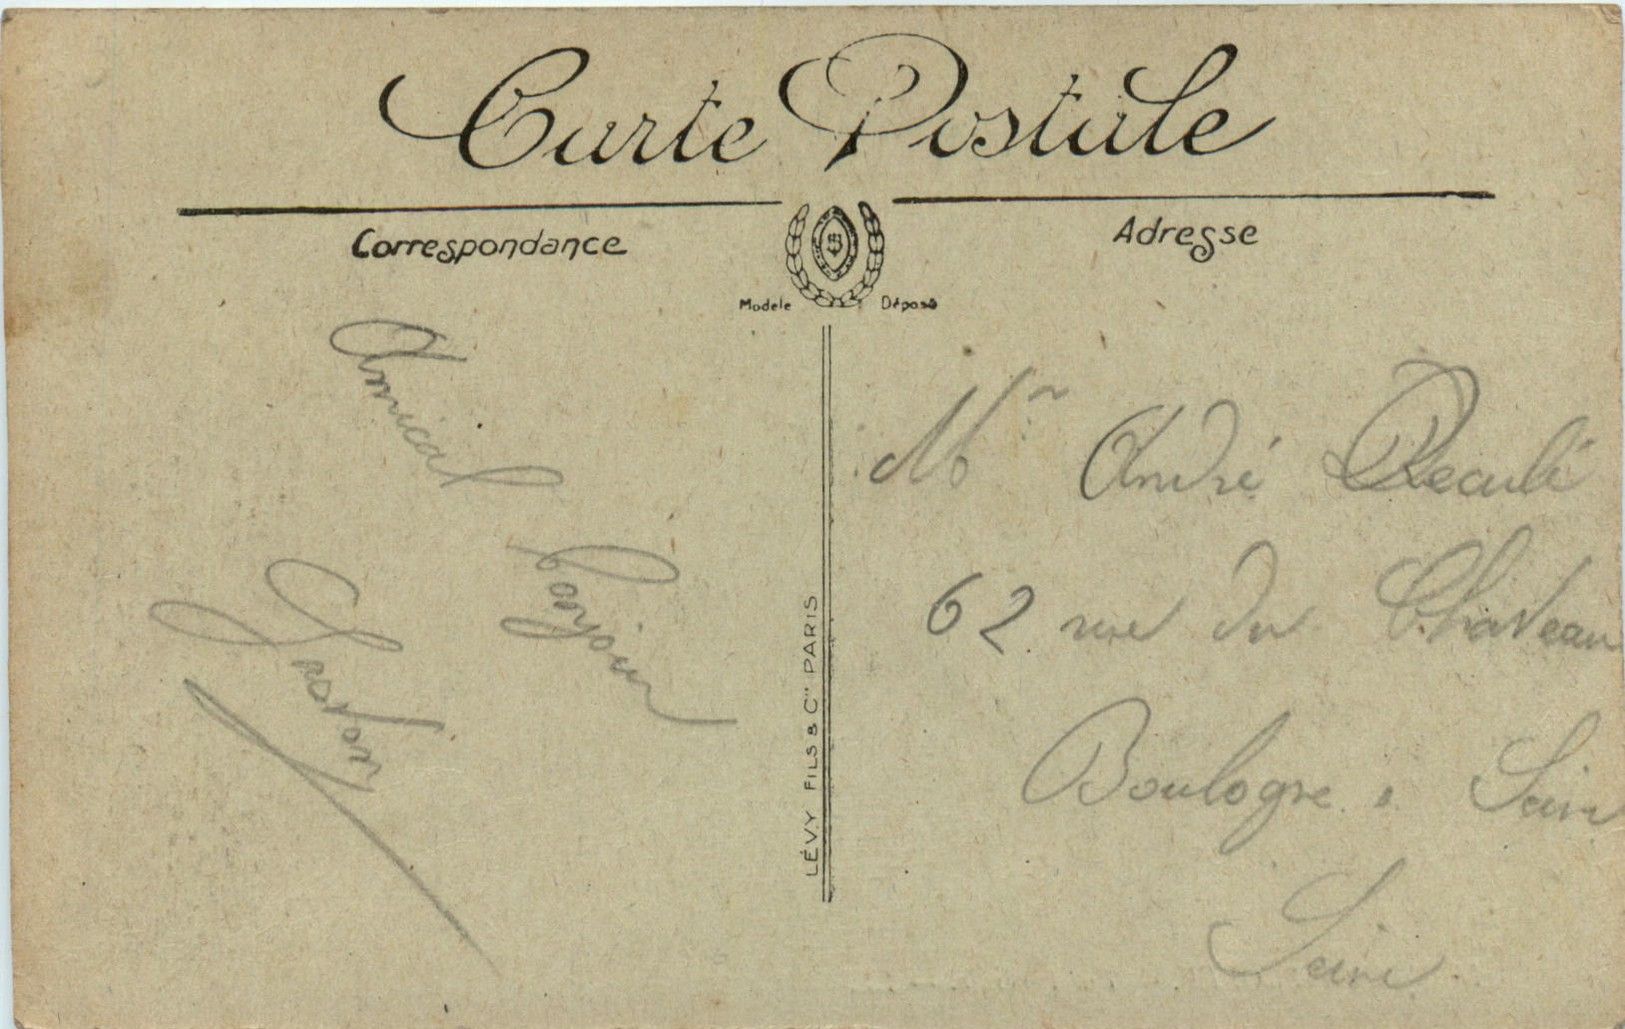 Carte Postale
Correspondance
Adresse
Modèle Déposé
Amical
bonjour
Gaston
LÉVY FILS & Cie PARIS
Mr André
62 rue du Chateau
Boulogne s. Seine
Seine